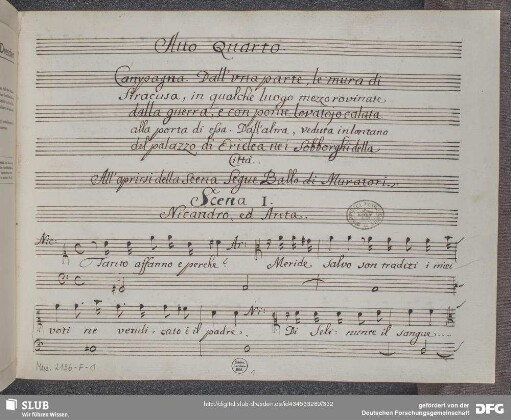 Atto Quarto.
Campagna. Dall'una parte, le mura di
Siracusa, in qualche luogo mezo rovinate
dalla guerra, e con ponte levatojo calata
alla porta di essa. Dall'altra, veduta in lontano
del palazzo di Eridea nei Sobborghi della
Città.
All'aprirsi della Scena Segue Ballo di Muratori.
Scena I.
Nicandro, ed Areta.
Nic: Ar:
Tanto affanno e perche? Meride salvo son traditi i miei
voti ne vendi- cato il padre. Di Seli- nunte il sangue
Ni:
Mus. 2186-F-11
1
SLUB
Wir führen Wissen.
gefördert von der
Deutschen Forschungsgemeinschaft
DFG